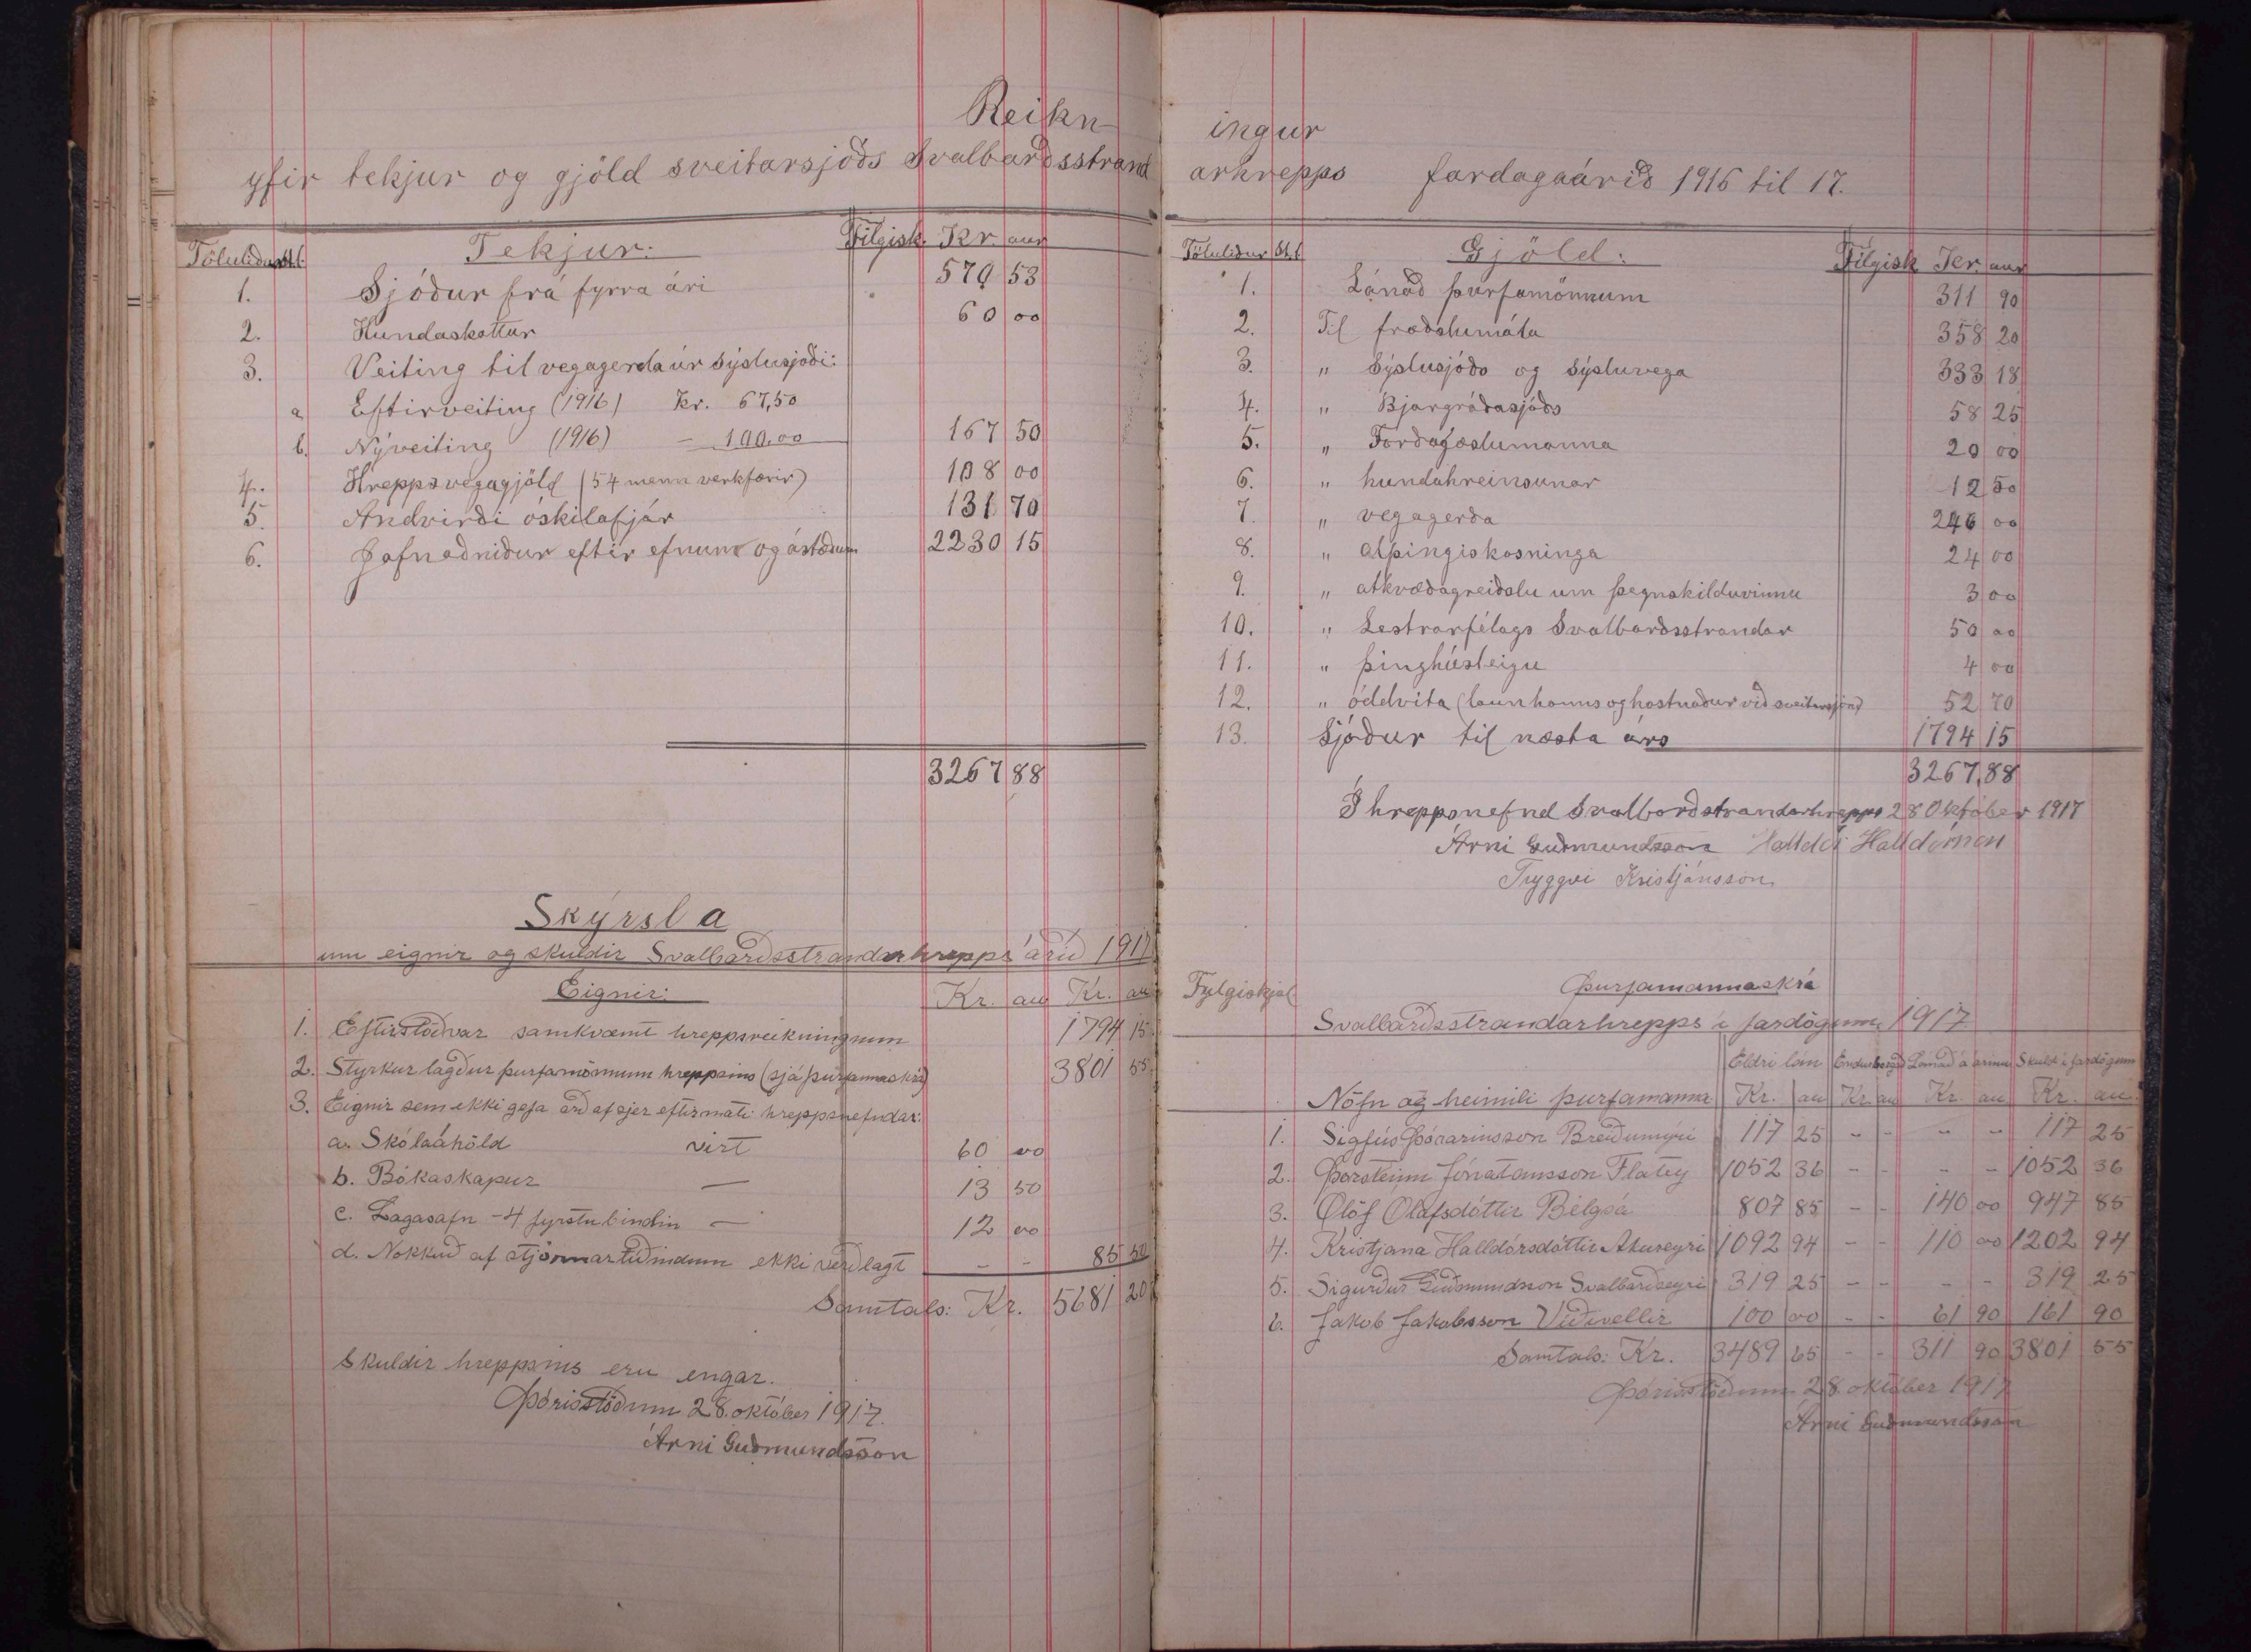 Reikningur
yfir tekjur og gjöld sveitarsjóðs Svalbarðsstrandarhrepps fardagaárið 1916 til 17.
Töluliður St.l. Tekjur: Filgisk. Kr. aur
1. Sjóður frá fyrra ári 570 53
2. Hundaskattur 60 00
3. Veiting til vegagerda úr Sýslusjóði:
a Eftirveiting (1916) Kr. 67,50
b. Nýveiting (1916) – 100.00 167 50
4. Hreppsvegagjöld (54 menn verkfærir) 108 00
5. Andvirði óskilafjár 131 70
6. Jafnaðniður eftir efnum og ástæðum 2230 15
3267 88
Skýrsla
um eignir og skuldir Svalbarðsstrandarhrepps árið 1917
Eignir: Kr. au Kr. au
1. Eftirstöðvar samkvæmt hreppsreikningnum 1794 15
2. Styrkur lagður þurfamönnum hreppsins (sjá þurfamaskrá) 3801 55
3. Eignir sem ekki gefa arð af sjer eftir mati hreppsnefndar:
a. Skólaáhöld virt 60 00
b. Bókaskapur — 13 50
c. Lagasafn – 4 fyrstu bindin — 12 00
d. Nokkuð af stjórnartíðindum ekki verðlagt - - 85 50
Samtals: Kr. 5681 20
Skuldir hreppsins eru engar.
Þórisstöðum 28. október 1917.
Árni Guðmundsson
Töluliður St.l. Gjöld: Filgisk Kr. aur
1. Lánað þurfamönnum 311 90
2. Til fræðslumála 358 20
3. " Sýslusjóðs og sýsluvega 333 18
4. " Bjargráðasjóðs 58 25
5. " Forðagæslumanna 20 00
6. " hundahreinsunar 12 50
7. " vegagerða 246 00
8. " alþingiskosninga 24 00
9. " atkvæðagreiðslu um þegnskilduvinnu 3 00
10. " Lestrarfélags Svalbarðsstrandar 50 00
11. " þinghúsleigu 4 00
12. " óddvita (laun hanns og kostnaður við sveitarstjórn) 52 70
13. Sjóður til næsta árs 1794 15
3267,88
Í hreppsnefnd Svalbarðstrandarhrepps 28 Október 1917
Árni Guðmundsson Halldór Halldórsson
Tryggvi Kristjánsson
Fylgiskjal Þurfamannaskrá
Svalbarðsstrandarhrepps í fardögum 1917
Eldri lán Endurborgað Lánað á árinu Skuld í fardögum
Nöfn og heimili þurfamanna Kr. au Kr. au Kr. au Kr. au
1. Sigfús Þórarinsson Breiðumýri 117 25 - - - - 117 25
2. Þorsteinn Jónatansson Flatey 1052 36 - - - - 1052 36
3. Ólöf Ólafsdóttir Bélgsá 807 85 - - 140 00 947 85
4. Kristjana Halldórsdóttir Akureyri 1092 94 - - 110 00 1202 94
5. Sigurður Guðmundsson Svalbarðseyri 319 25 - - - - 319 25
6. Jakob Jakobsson Viðivellir 100 00 - - 61 90 161 90
Samtals: Kr. 3489 65 - - 311 90 3801 55
Þórisstöðum 28. október 1917
Árni Guðmundsson